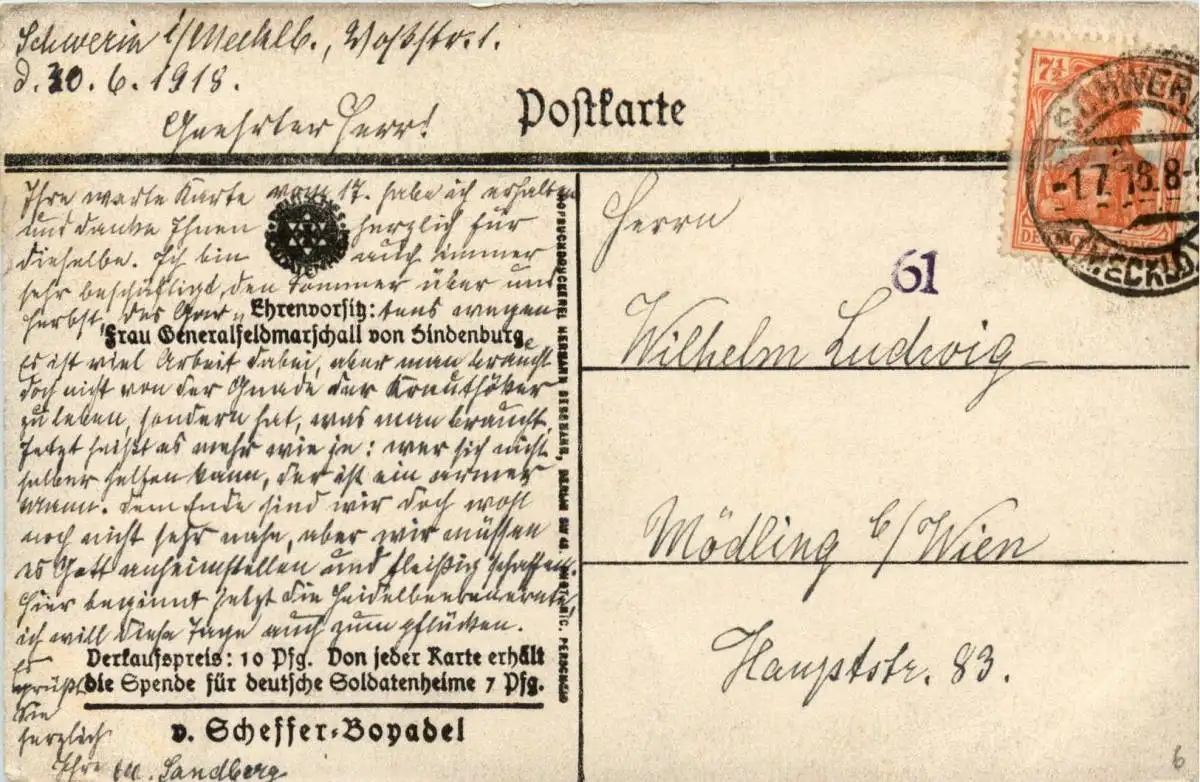 Schwerin i/Mecklb., Voßstr. 1.
d. 30. 6. 1918.
Geehrter Herr!
Postkarte
Ihre werte Karte vom 17. habe ich erhalten
und danke Ihnen herzlich für
dieselbe. Ich bin auch immer
sehr beschäftigt, den Sommer über und
Herbst, des wegen
Ehrenvorsitz:
Frau Generalfeldmarschall von Hindenburg
Es ist viel Arbeit dabei, aber man braucht
doch nicht von der Gnade der Krauthöker
zu leben, sondern hat, was man braucht.
Jetzt heißt es mehr wie je: wer sich nicht
selber helfen kann, der ist ein armer
Mann. Dem Ende sind wir doch wohl
noch nicht sehr nahe, aber wir müssen
es Gott anheimstellen und fleißig schaffen.
Hier beginnt jetzt die Heidelbeerenernte,
ich will diese Tage auch zum pflücken.
Verkaufspreis: 10 Pfg. Von jeder Karte erhält
die Spende für deutsche Soldatenheime 7 Pfg.
v. Scheffer-Boyadel
Es
grüßt
Sie
herzlich
Ihre M. Sandberg
HOFBUCHDRUCKEREI HERMANN BERGMANN, BERLIN SW 48.
7½
SCHWERIN
-1.7.18.8-
(MECKLB)
61
Herrn
Wilhelm Ludwig
Mödling b/Wien
Hauptstr. 83.
6